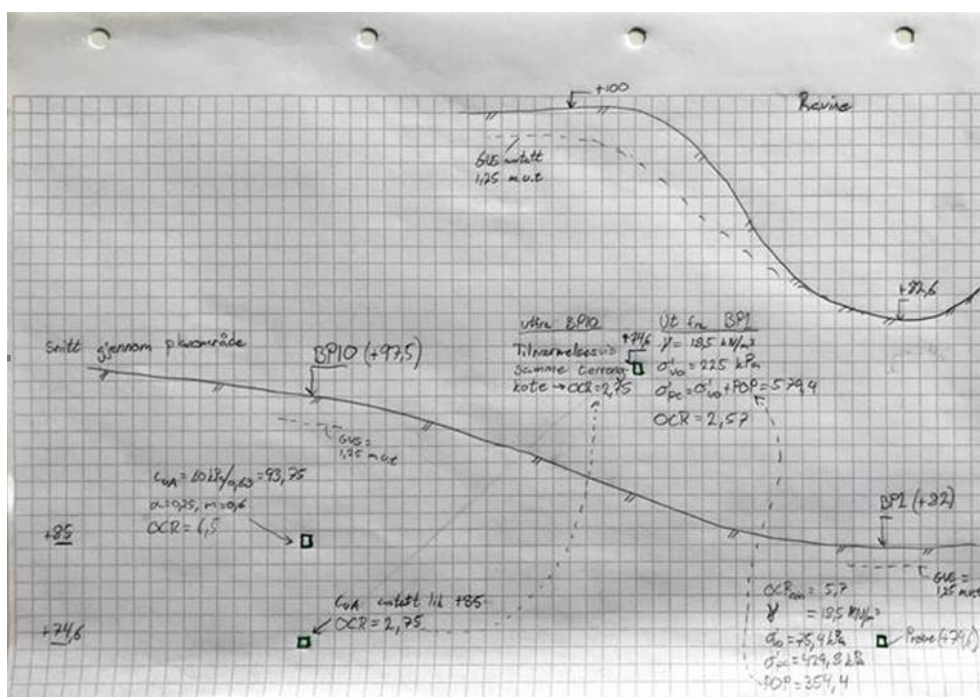 +100
Ravine
GVS antatt
1,25 m.u.t
+82,6
Snitt gjennom planområde
BP10 (+97,5)
GVS =
1,25 m.u.t
Utfra BP10
Tilnærmelsesvis
samme terreng
kote → OCR=2,75
+74,6
Ut fra BP1
γ = 18,5 kN/m³
σ'vo = 225 kPa
σ'pc = σ'vo + POP = 579,4
OCR = 2,57
CuA = 60 kPa/0,63 = 93,75
α=0,25, m=0,6
OCR = 6,5
+85
BP1 (+82)
GVS =
1,25 m.u.t
CuA antatt lik +85
OCR = 2,75
+74,6
OCR = 5,7
γ = 18,5 kN/m³
σ'vo = 75,4 kPa
σ'pc = 429,8 kPa
POP = 354,4
Prøve (+74,6)